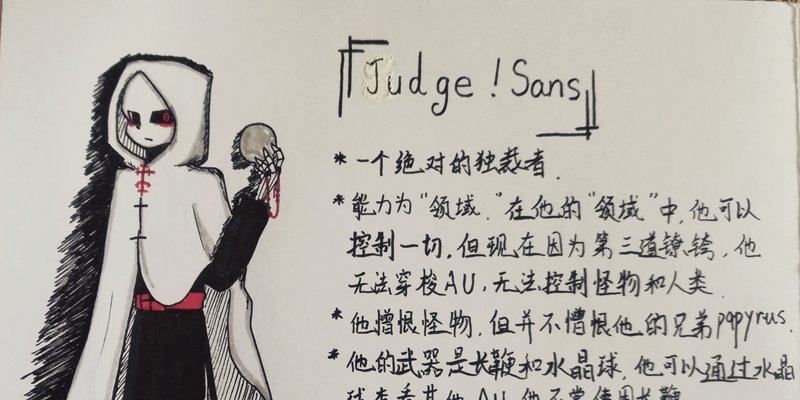 Judge！Sans
* 一个绝对的独裁者.
* 能力为"领域."在他的"领域"中,他可以
控制一切.但现在因为第三道镣铐,他
无法穿梭AU,无法控制怪物和人类.
* 他憎恨怪物,但并不憎恨他的兄弟papyrus.
* 他的武器是长鞭和水晶球.他可以通过水晶
球查看其他AU,他不常使用长鞭